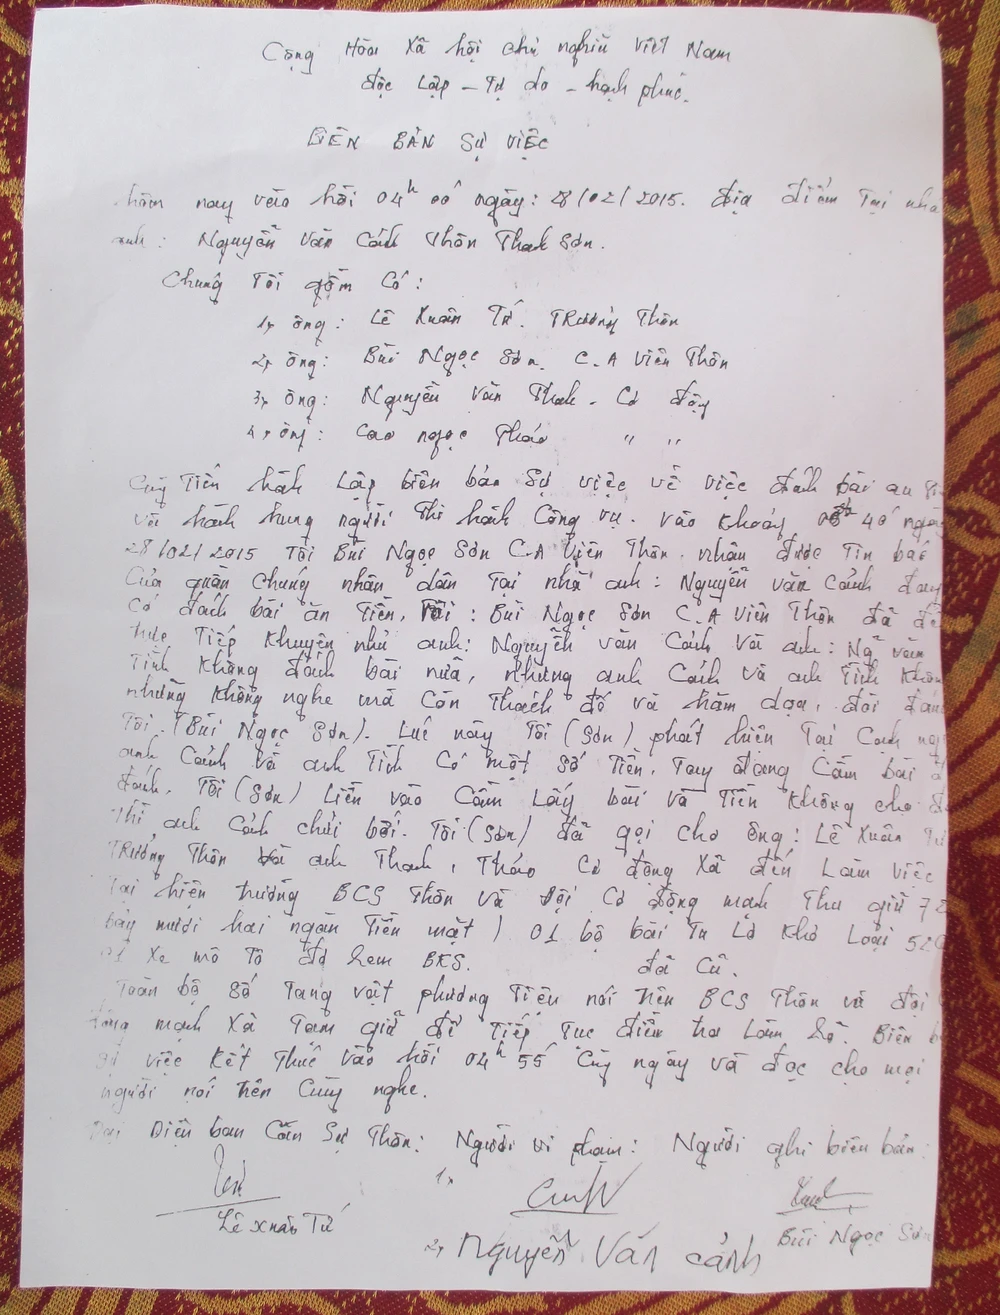 Cộng Hòa Xã hội chủ nghĩa Việt Nam
độc Lập - Tự do - hạnh phúc.
BIÊN BẢN SỰ VIỆC
hôm nay vào hồi 04h 00 ngày: 28/02/2015. Địa điểm Tại nhà
anh: Nguyễn Văn Cảnh Thôn Thanh Sơn.
Chúng Tôi gồm Có:
1, ông: Lê Xuân Tứ. TRưởng Thôn
2, ông: Bùi Ngọc Sơn. C.A Viên Thôn
3, ông: Nguyễn Văn Thanh - Cơ động
4, ông: Cao ngọc Thảo " "
Cùng Tiến hành Lập biên bản Sự việc về việc đánh bài ăn
và hành hung người Thi hành Công vụ. Vào Khoảng 40
28/02/2015 Tôi Bùi Ngọc Sơn C.A Viên Thôn. nhận được Tin báo
Của quần chúng nhân dân Tại nhà anh: Nguyễn văn Cảnh đang
Có đánh bài ăn Tiền, Tôi: Bùi Ngọc Sơn C.A Viên Thôn đã
Trực Tiếp Khuyên nhủ anh: Nguyễn văn Cảnh và anh: Ng văn
Tình Không đánh bài nữa, nhưng anh Cảnh và anh Tình Không
những Không nghe mà Còn Thách đố và hăm dọa, đòi đánh
Tôi. (Bùi Ngọc Sơn). Lúc này Tôi (Sơn) phát hiện Tại Cạnh
anh Cảnh và anh Tình Có một Số Tiền, Tay đang Cầm bài
đánh, Tôi (Sơn) Liền vào Cầm Lấy bài và Tiền Không cho
Thì anh Cảnh chửi bới. Tôi (Sơn) đã gọi cho ông: Lê Xuân Tứ
TRưởng Thôn và anh Thanh, Thảo Cơ động Xã đến Làm việc
Tại hiện trường BCS Thôn và Đội Cơ động mạnh Thu giữ
bảy mươi hai ngàn Tiền mặt) 01 bộ bài Tú Lơ Khơ Loại
01 Xe mô Tô BKS. đã Cũ.
Toàn bộ Số Tang vật phương Tiện nói Trên BCS Thôn và đội
động mạnh Xã Tạm giữ để Tiếp Tục điều tra Làm rõ. Biên
việc Kết Thúc vào hồi 04h 55 Cùng ngày và đọc cho mọi
người nói Trên Cùng nghe.
Đại Diện ban Cán Sự Thôn: Người vi phạm: Người ghi biên bản:
1,
Lê Xuân Tứ
Bùi Ngọc Sơn
2, Nguyễn Văn cảnh